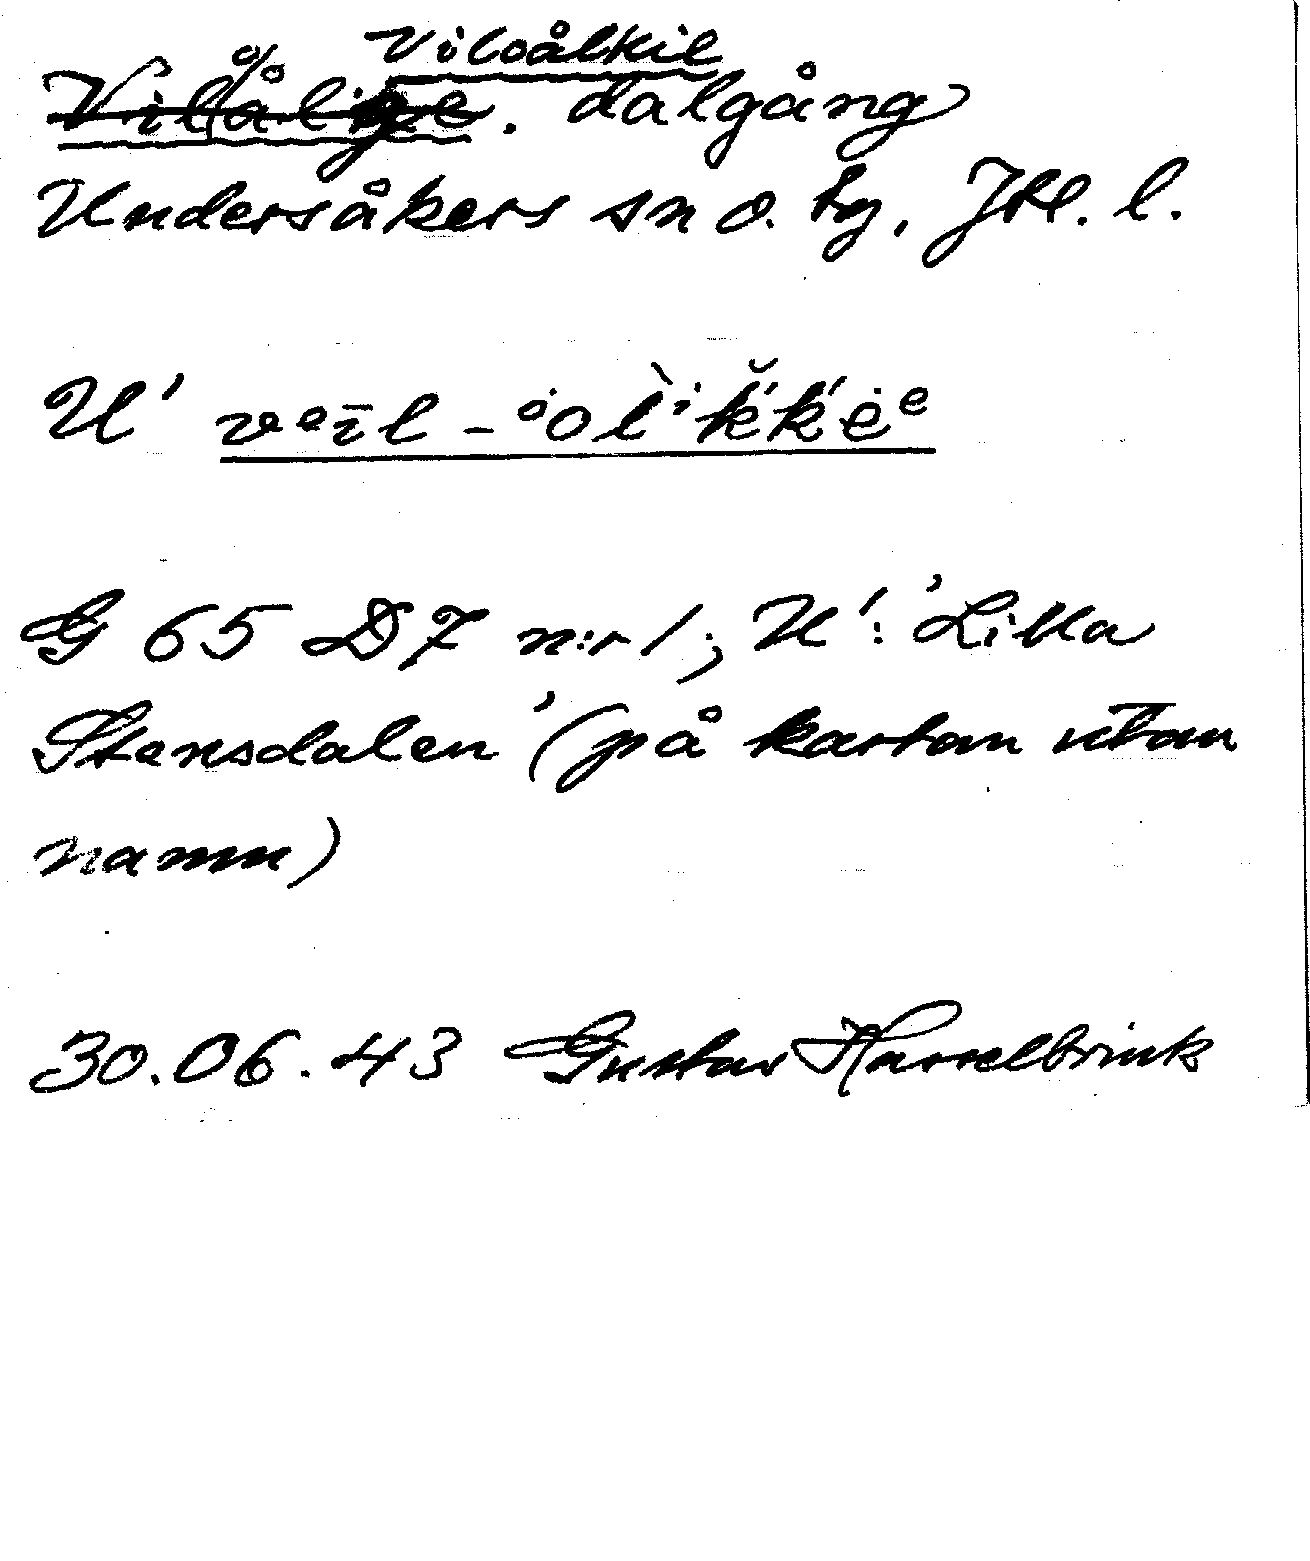 Viloålkie
Vilålige. dalgång
Undersåkers sn o. tg, Jtl. l.
U'
G 65 D7 n:r 1; U': 'Lilla
Stensdalen' (på kartan utan
namn)
30.06.43 Gustav Hasselbrink